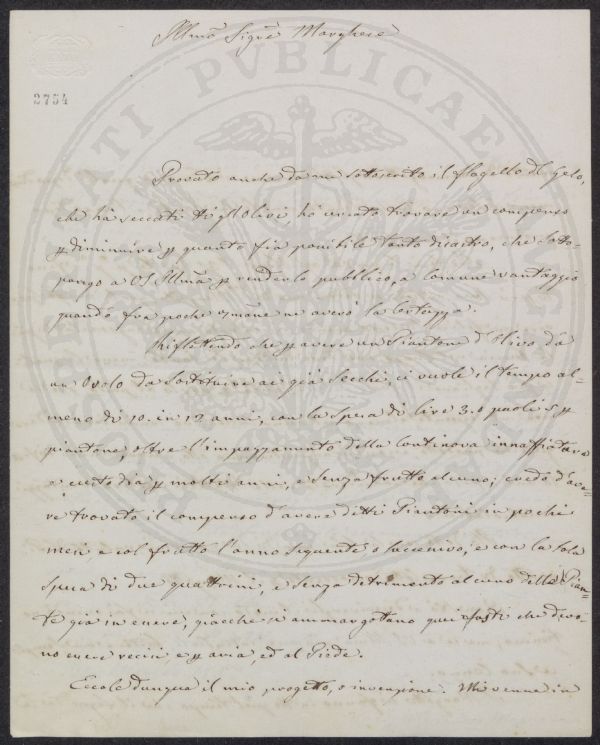 Illmo Sigre Marchese
2754
Provato anche da me sottoscritto il flagello del Gelo,
che hà seccati tti gli Olivi hò cercato trovare un compenso
p diminuire p quanto sia possibile tanto disastro, che sotto-
pongo a VS. Illma p renderlo pubblico, a comune vantaggio
quando fra poche settimane ne averò la certezza.
Riflettendo che p avere un Piantone d'Olivo da
un Ovolo da sostituire ai già secchi, ci vuole il tempo al-
meno di 10. in 12 anni, con la spesa di lire 3. o paoli 5 p
piantone, oltre l'impazzamento della continova innaffiatura
e ecceto dia p molti anni, e senza frutto alcuno; credo d'ave-
re trovato il compenso d'avere detti Piantoni in pochi
mesi e col frutto l'anno seguente o successivo, e con la sola
spesa di due quattrini, e senza detrimento alcuno delle Pian-
te già in essere, giacchè si ammargotano quei fusti che devo-
no essere recisi e p aria, ed al Piede.
Eccole dunque il mio progetto, o invenzione. Mi venne in